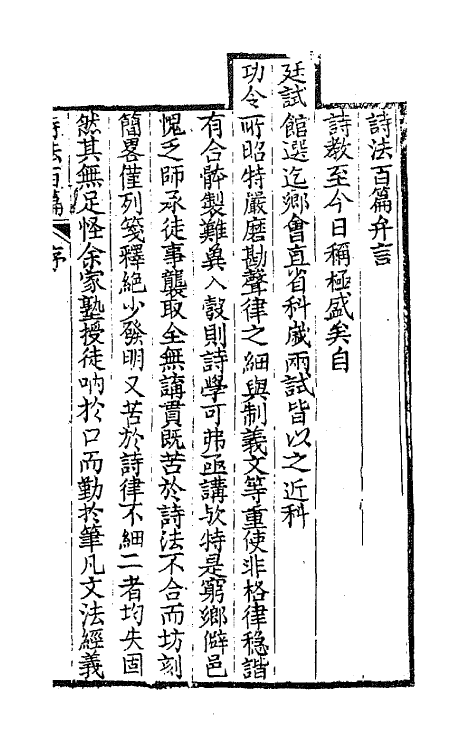 詩法百篇弁言
詩教至今日稱極盛矣自
廷試館選迄鄉會直省科歲兩試皆以之近科
功令所昭特嚴磨勘聲律之細與制義文等重使非格律穩諧
有合體製難兾入彀則詩學可弗亟講欤特是窮鄉僻邑
愧乏師承徒事襲取全無講貫既苦於詩法不合而坊刻
簡畧僅列箋釋絕少發明又苦於詩律不細二者均失固
然其無足怪余家塾授徒吶於口而勤於筆凡文法經義
詩法百篇 序